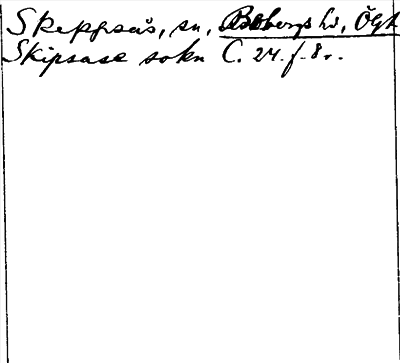 Skeppsås, sn, Bobergs hd, Ögtl
Skipsase sokn C. 24. f. 8 r.